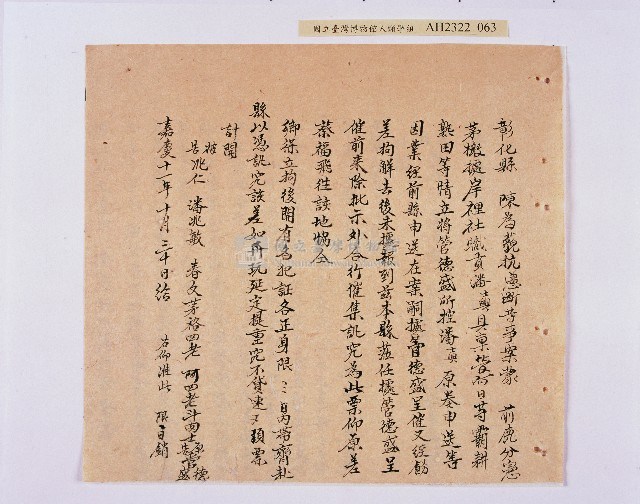 國立臺灣博物館人類學組 AH2322 063
彰化縣 陳為藐抗憲斷等事案蒙 前鹿分憲
茅檄據岸裡社職員潘貢具稟管阿日等霸耕
熟田等情立將管德盛所控潘貢原卷申送等
因業經前縣申送在案嗣據管德盛呈催又經飭
差拘解去後未據報到茲本縣蒞任據管德盛呈
催前來除批示外合行催集訊究為此票仰原差
蔡福飛往該地協仝
鄉保立拘後開有名犯証各正身限三日內帶齊赴
縣以憑訊究該差如再玩延定提重究不貸速速須票
計開
被告 兆仁 潘兆敏 春文 茅格四老 阿四老 斗四士 原告管德盛
嘉慶十一年十月三十日給 右仰准此 限日銷
國立臺灣博物館